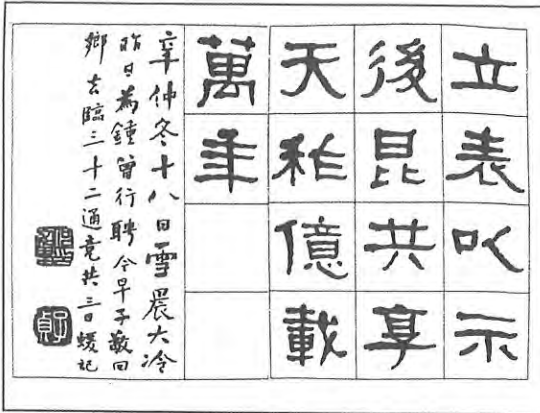 立表㕥示
後昆共享
天祚億載
萬年
辛仲冬十八日雪晨大冷
昨日為鍾曾行聘令早子敬回
鄉去臨三十二通竟共三日蝯記